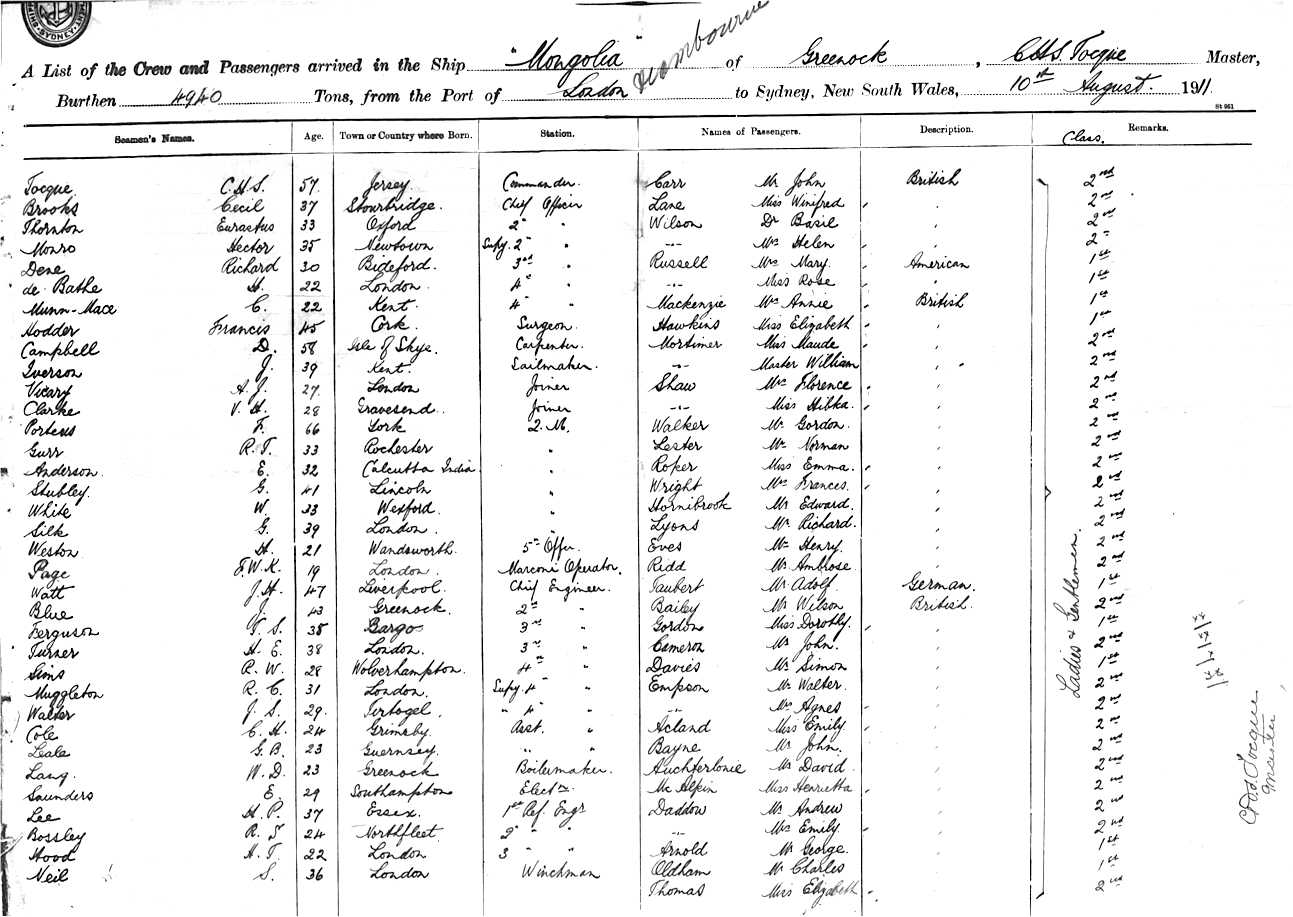 SYDNEY
Melbourne
A List of the Crew and Passengers arrived in the Ship "Mongolia" of Greenock, C.H.S. Tocque Master,
Burthen 4940 Tons, from the Port of London to Sydney, New South Wales, 10th August. 1911.
St 961
Seamen's Names. Age. Town or Country where Born. Station. Names of Passengers. Description. Class. Remarks.
Tocque C.H.S. 57 Jersey Commander. Carr Mr John British 2nd
Brooks Cecil 37 Stourbridge. Chief Officer Lane Miss Winifred " 2nd
Thornton Eurastus 33 Oxford 2nd " Wilson Dr Basil " 2nd
Monro Hector 35 Newtown Supy. 2nd " --- Mrs Helen " 2nd
Dene Richard 30 Bideford. 3rd " Russell Mrs Mary. American 1st
de Bathe H. 22 London. 4th " --- Miss Rose " 1st
Munn-Mace C. 22 Kent. 4th " Mackenzie Mrs Annie British 1st
Hodder Francis 45 Cork Surgeon. Hawkins Miss Elizabeth " 1st
Campbell D. 58 Isle of Skye. Carpenter. Mortimer Miss Maude " 2nd
Iverson J. 39 Kent. Sailmaker. --- Master William " 2nd
Vicary A. J. 27. London Joiner Shaw Mrs Florence " 2nd
Clarke V. H. 28 Gravesend. Joiner --- Miss Hibka. " 2nd
Porteus F. 66 York Q.M. Walker Mr Gordon. " 2nd
Gurr R. T. 33 Rochester " Lester Mr Norman " 2nd
Anderson. E. 32 Calcutta India " Roper Miss Emma. " 2nd
Stubley. G. 41 Lincoln " Wright Mrs Frances. " 2nd
White W. 33 Wexford. " Hornibrook Mr Edward. " 2nd
Silk G. 39 London. " Lyons Mr Richard. " 2nd
Weston H. 21 Wandsworth. 5th Offr. Eves Mr Henry. " 2nd
Page F.W.K. 19 London. Marconi Operator. Ridd Mr Ambrose " 2nd
Watt J.H. 47 Liverpool. Chief Engineer. Taubert Mr Adolf German. 1st
Blue J. 43 Greenock. 2nd " Bailey Mr Wilson British. 2nd
Ferguson 38 Bargo 3rd " Gordon Miss Dorothy. " 1st
Turner H. E. 38 London. 3rd " Cameron Mr John. " 2nd
Sims R. W. 28 Wolverhampton. 4th " Davies Mr Simon " 1st
Muggleton R. C. 31 London. Supy. 4th " Empson Mr Walter. " 2nd
Walter J. S. 29. " 4th " --- Mrs Agnes " 2nd
Cole C. H. 24 Grimsby Asst. " Acland Miss Emily. " 2nd
Leale G. B. 23 Guernsey. " " Bayne Mr John. " 2nd
Lang. W. D. 23 Greenock Boilermaker. Auchterlonie Mr David. " 2nd
Saunders E. 29 Southampton Electn. Mc Alpin Miss Henrietta " 2nd
Lee H. P. 37 Essex. 1st Ref. Engr Daddow Mr Andrew " 2nd
Bossley R. S 24 Northfleet. 2nd " " --- Mrs Emily " 2nd
Hood H. T. 22 London 3 " " Arnold Mr George. " 1st
Neil S. 36 London Winchman Oldham Mr Charles " 1st
Thomas Miss Elizabeth " 2nd
Ladies & Gentlemen.
C H S Tocque
Master